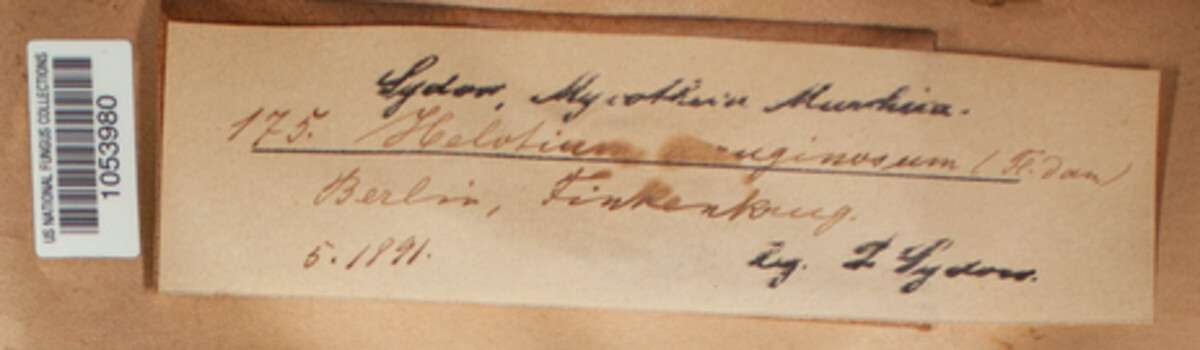 US NATIONAL FUNGUS COLLECTIONS
1053980
Sydow, Mycotheca Marchica.
175. Helotium aeruginosum (Fl. dan)
Berlin, Finkenkrug.
5. 1891.
leg. P Sydow.